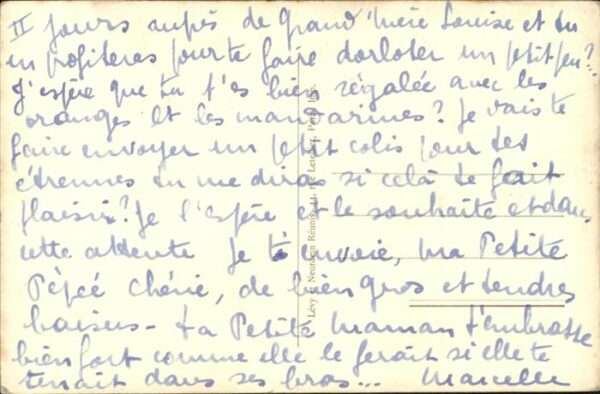 II jours auprès de Grand'Mère Louise et tu
en profiteras pour te faire dorloter un petit peu?..
J'espère que tu t'es bien régalée avec les
oranges et les mandarines? Je vais te
faire envoyer un petit colis pour tes
étrennes tu me diras si celà te fait
plaisir? Je l'espère et le souhaite et dans
cette attente je t'envoie, ma Petite
chérie, de bien gros et tendres
baisers - ta Petite Maman t'embrasse
bien fort comme elle le ferait si elle te
tenait dans ses bras... Marcelle
Lévy & Neurdein Réunis, 44, rue Letellier, Paris